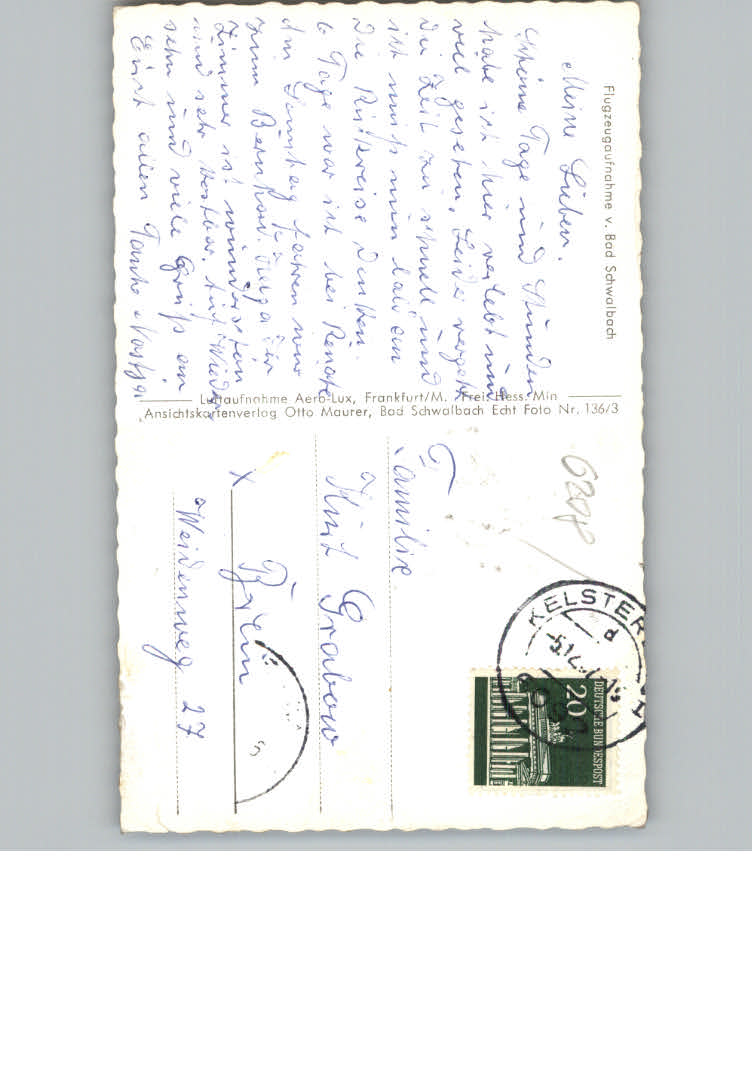 Flugzeugaufnahme v. Bad Schwalbach
Meine Lieben.
schöne Tage und Stunden
habe ich hier verlebt und
viel gesehen, Leider vergeht
die Zeit zu schnell und
ich muß nun bald an
die Rückreise denken.
6 Tage war ich bei Renate
Am Samstag fahren wir
zum Bernhard.
Zimmer ist wunderschön
und sehr Auf Wieder
sehn und viele Grüße an
Euch allen Tante
Luftaufnahme Aero-Lux, Frankfurt/M. Frei: Hess. Min
Ansichtskartenverlag Otto Maurer, Bad Schwalbach Echt Foto Nr. 136/3
6208
KELSTER
d
DEUTSCHE BUNDESPOST
20
Familie
Kurt Grabow
X
Weidenweg 27